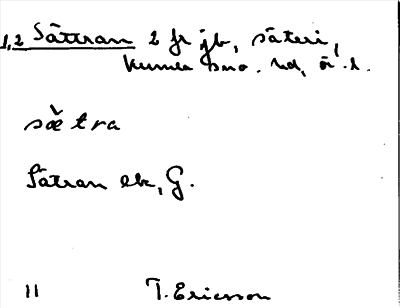 1,2 Sättran 2 fr jb, säteri,
Kumla sn o. hd, ö.l.
sǣtra
Sätran ek, G.
11 T. Ericsson